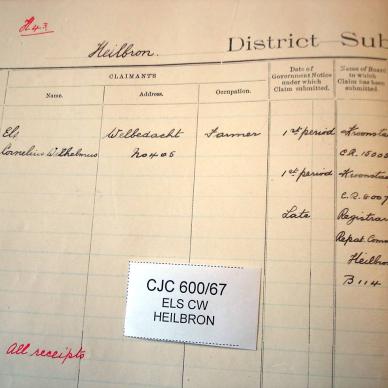 H43
Heilbron.
District Sub
CLAIMANTS
Name.
Address.
Occupation.
Date of
Government Notice
under which
Claim submitted.
Name of Board
to which
Claim has been
submitted.
Els
Welbedacht
Farmer
1st period
Kroonstad
Cornelius Wilhelmus
No 405
C.R. 15008
1st period
Kroonstad
C.R. 8007
Late
Registrar
Repat. Comm
Heilbron
B 114
CJC 600/67
ELS CW
HEILBRON
All receipts